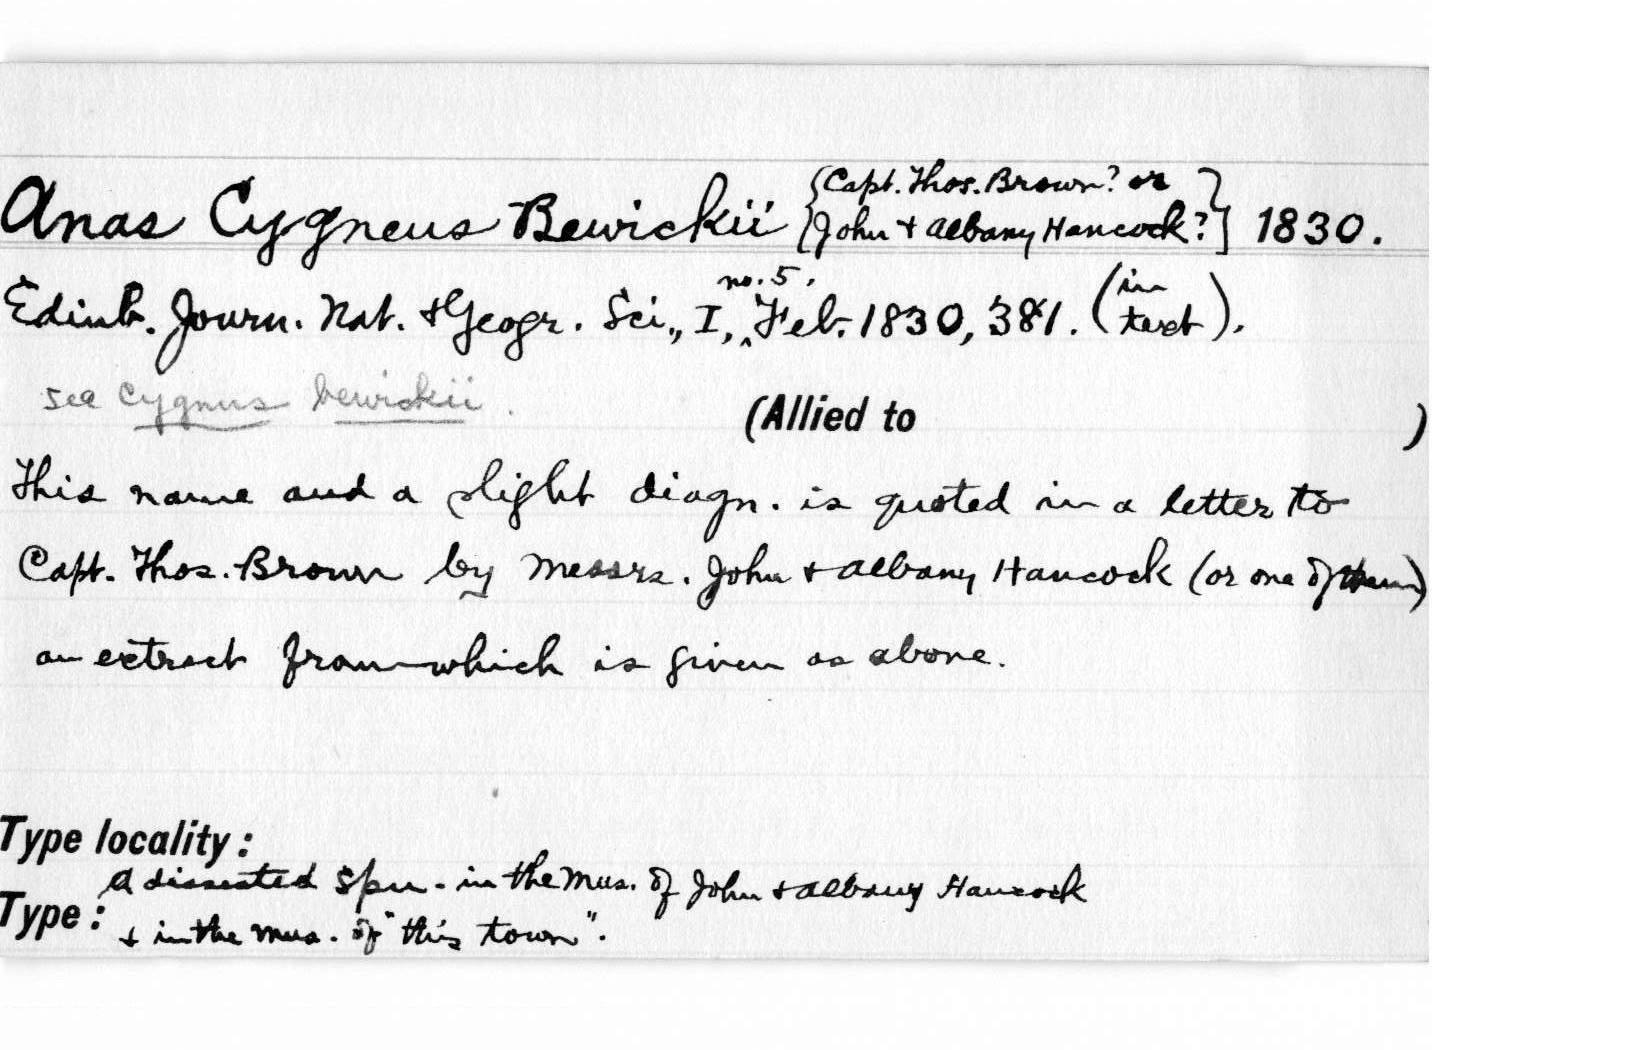 Anas Cygneus Bewickii {Capt. Thos. Brown? or John + Albany Hancock?} 1830.
Edinb. Journ. Nat. + Geogr. Sci., I, no. 5, Feb. 1830, 381. (in text).
see Cygnus bewickii.
(Allied to )
This name and a slight diagn. is quoted in a letter to
Capt. Thos. Brown by Messrs. John + Albany Hancock (or one of them)
an extract from which is given as above.
Type locality:
Type: A dissected spn. in the Mus. of John + Albany Hancock
+ in the mus. of "this town".